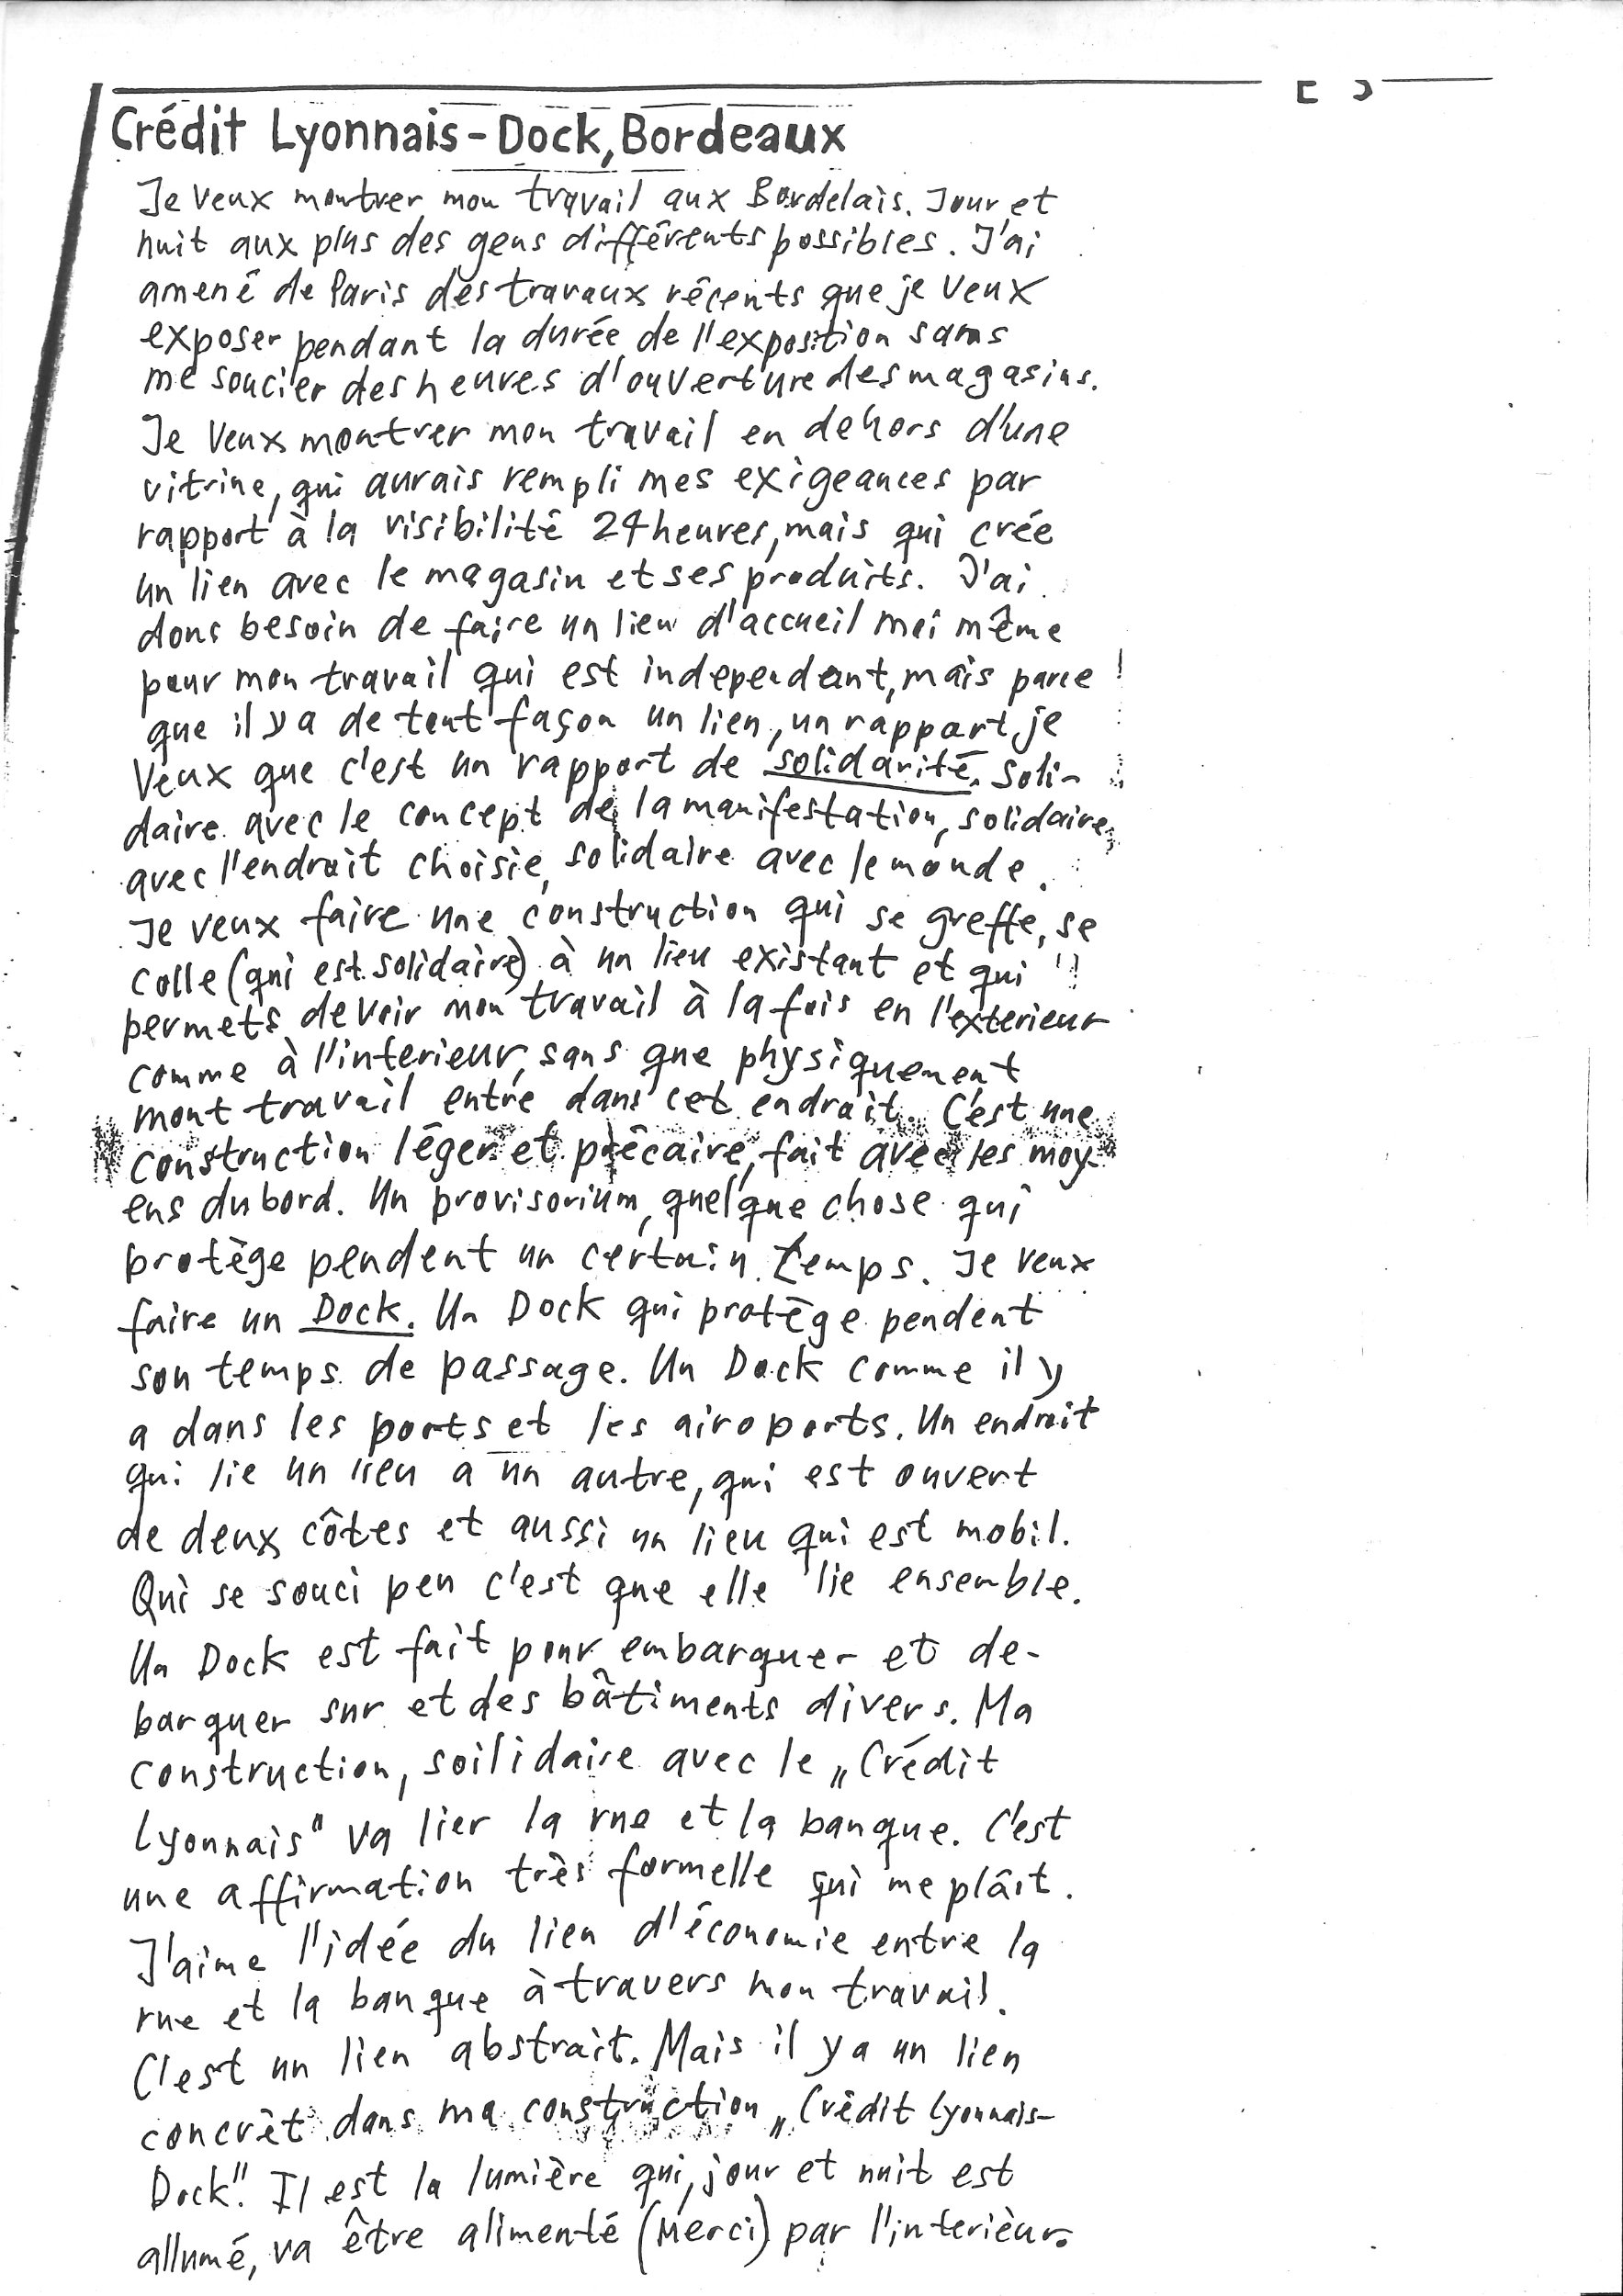 Crédit Lyonnais-Dock, Bordeaux
Je veux montrer mon travail aux Bordelais. Jour et
nuit aux plus des gens différents possibles. J'ai
amené de Paris des travaux récents que je veux
exposer pendant la durée de l'exposition sans
me soucier des heures d'ouverture des magasins.
Je veux montrer mon travail en dehors d'une
vitrine, qui aurais rempli mes exigeances par
rapport à la visibilité 24 heures, mais qui crée
un lien avec le magasin et ses produits. J'ai
donc besoin de faire un lieu d'accueil moi même
pour mon travail qui est independant, mais parce
que il y a de tout façon un lien, un rapport, je
veux que c'est un rapport de solidarité. Soli-
daire avec le concept de la manifestation, solidaire
avec l'endroit choisie, solidaire avec le monde.
Je veux faire une construction qui se greffe, se
colle (qui est solidaire) à un lieu existant et qui
permets de voir mon travail à la fois en l'exterieur
comme à l'interieur, sans que physiquement
mont travail entre dans cet endroit. C'est une
construction léger et précaire, fait avec les moy-
ens du bord. Un provisorium, quelque chose qui
protège pendent un certain temps. Je veux
faire un Dock. Un Dock qui protège pendent
son temps de passage. Un Dock comme il y
a dans les ports et les airoports. Un endroit
qui lie un lieu a un autre, qui est ouvert
de deux côtes et aussi un lieu qui est mobil.
Qui se souci peu c'est que elle lie ensemble.
Un Dock est fait pour embarquer et de-
barquer sur et des bâtiments divers. Ma
construction, soilidaire avec le „Crédit
Lyonnais" va lier la rue et la banque. C'est
une affirmation très formelle qui me plâit.
J'aime l'idée du lien d'économie entre la
rue et la banque à travers mon travail.
C'est un lien abstrait. Mais il y a un lien
concrèt dans ma construction „Crédit Lyonnais-
Dock". Il est la lumière qui, jour et nuit est
allumé, va être alimenté (Merci) par l'interièur.